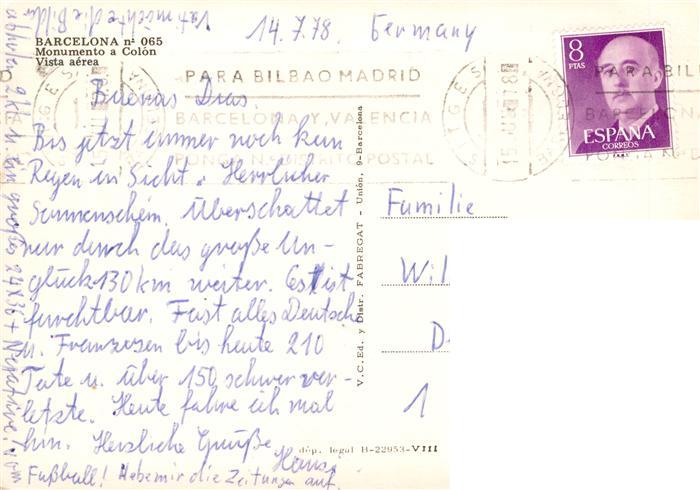 14.7.78. Germany
BARCELONA nº 065
Monumento a Colón
Vista aérea
8
PTAS
ESPAÑA
CORREOS
PARA BILBAO MADRID
BARCELONA Y VALENCIA
PONGA N.º DISTRITO POSTAL
SITGES
Buenas Dias.
Bis jetzt immer noch kein
Regen in Sicht. Herrlicher
Sonnenschein. Überschattet
nur durch das große Un-
glück 130 km weiter. Es ist
furchtbar. Fast alles Deutsche
u. Franzosen bis heute 210
Tote u. über 150 schwer ver-
letzte. Heute fahre ich mal
hin. Herzliche Grüße
Hans
Fußball! Hebe mir die Zeitungen auf.
Vati möchte die Bilder
abholen 2 kleine ein großes 24x36 + Negative! vom
V.C. Ed. y Distr. FABREGAT - Unión, 9-Barcelona
dép. legal B-22953-VIII
Familie
Wil
D
1